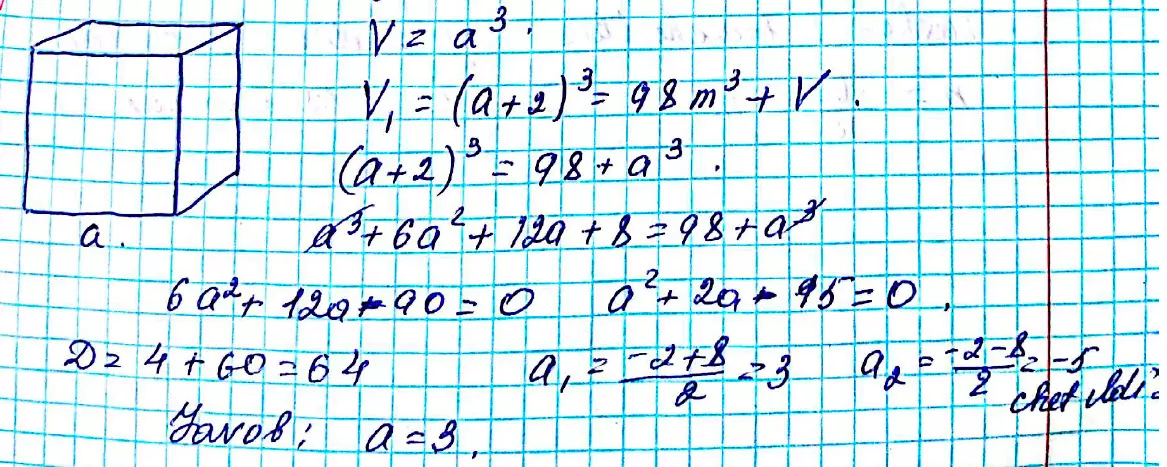 V = a³.
V₁ = (a+2)³ = 98 m³ + V.
(a+2)³ = 98 + a³.
a.
a³ + 6a² + 12a + 8 = 98 + a³
6a² + 12a - 90 = 0 a² + 2a - 15 = 0.
D = 4 + 60 = 64 a₁ = (-2+8)/2 = 3 a₂ = (-2-8)/2 = -5
chet ildiz
Javob: a = 3.